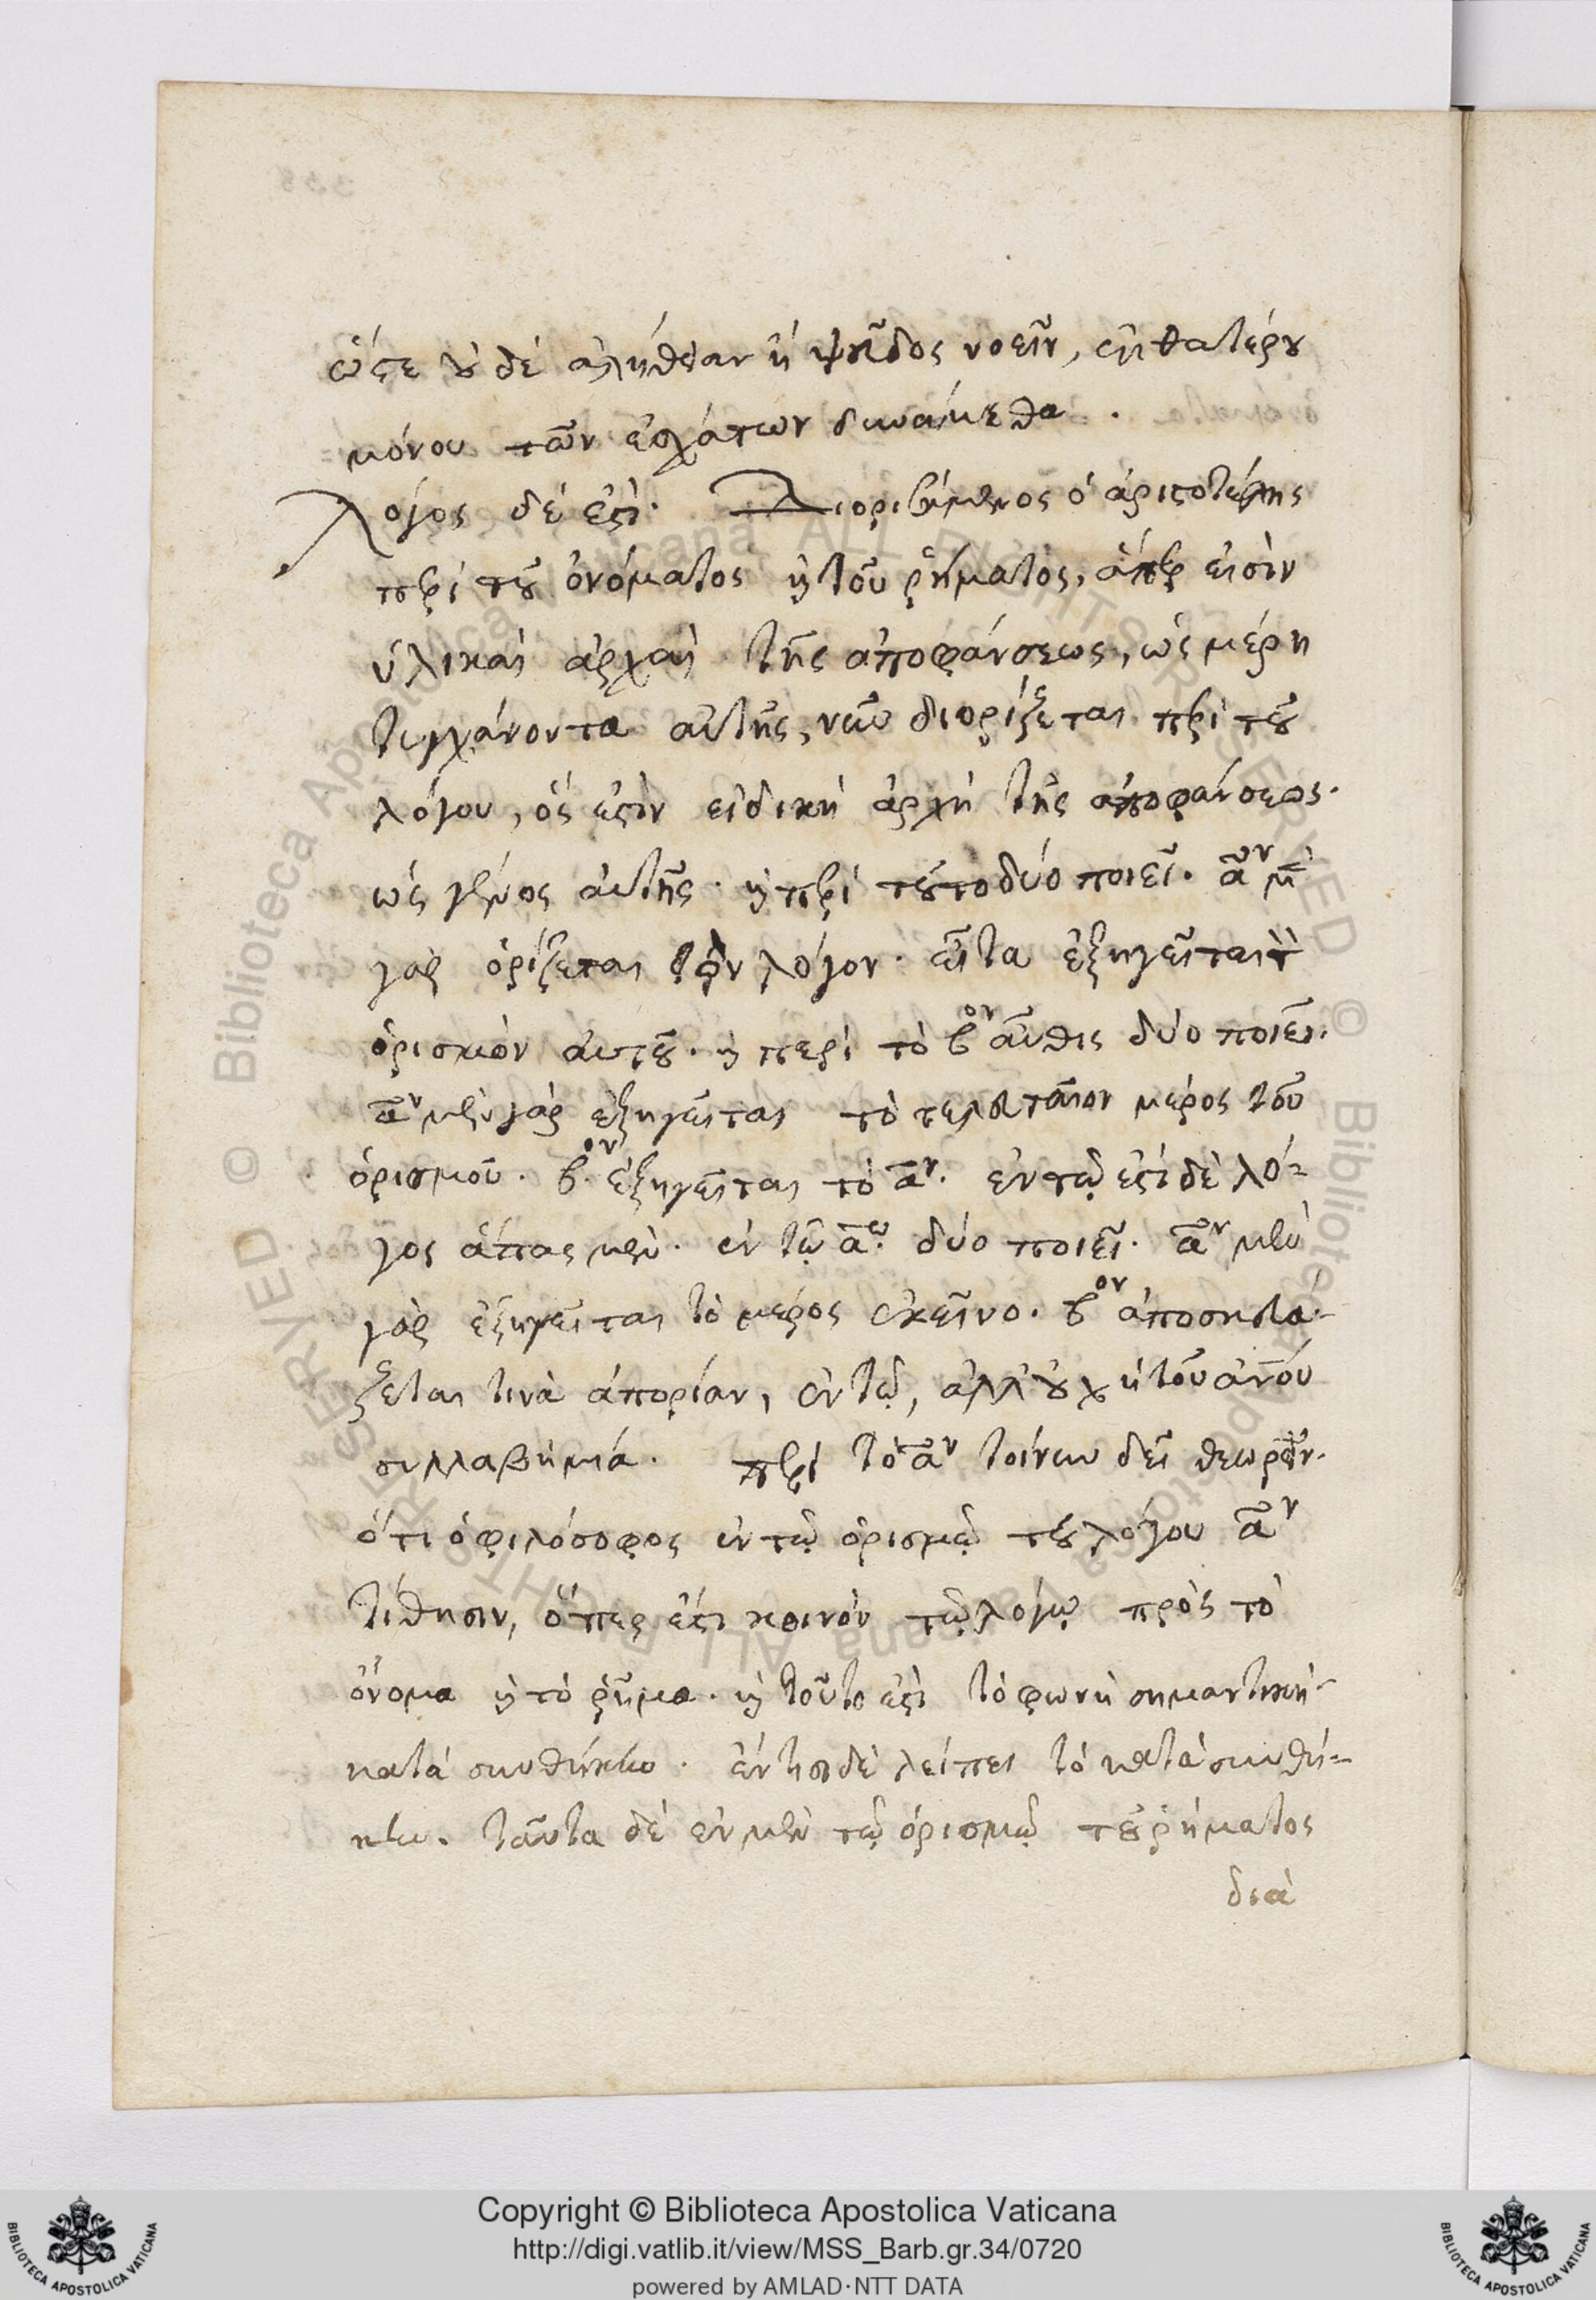 ὥστε οὐδὲ ἀλήθειαν ἢ ψεῦδος νοεῖν, ἐπὶ θατέρου
μόνου τῶν ἐσχάτων δυνάμεθα.
λόγος δέ ἐστι. Διοριζόμενος ὁ ἀριστοτέλης
περὶ τοῦ ὀνόματος καὶ τοῦ ῥήματος, ἅπερ εἰσὶν
ὑλικαὶ ἀρχαὶ τῆς ἀποφάνσεως, ὡς μέρη
τυγχάνοντα αὐτῆς, νῦν διορίζεται περὶ τοῦ
λόγου, ὅς ἐστιν εἰδικὴ ἀρχὴ τῆς ἀποφάνσεως.
ὡς γένος αὐτῆς. καὶ περὶ τοῦτο δύο ποιεῖ. αον μὲν
γὰρ ὁρίζεται τὸν λόγον. εἶτα ἐξηγεῖται τὸν
ὁρισμὸν αὐτοῦ. καὶ περὶ τὸ βον αὖθις δύο ποιεῖ.
αον μὲν γὰρ ἐξηγεῖται τὸ τελευταῖον μέρος τοῦ
ὁρισμοῦ. βον ἐξηγεῖται τὸ αον. ἐν τῷ ἐστὶ δὲ λό=
γος ἅπας μέν. ἐν τῷ αῳ. δύο ποιεῖ. αον μὲν
γὰρ ἐξηγεῖται τὸ μέρος ἐκεῖνο. βον ἀποσκευά-
ζεται τινὰ ἀπορίαν, ἐν τῷ, ἀλλ' οὐχ ἡ τοῦ ἀνου
συλλαβὴ μία. περὶ τὸ αον τοίνυν δεῖ θεωρεῖν.
ὅτι ὁ φιλόσοφος ἐν τῷ ὁρισμῷ τοῦ λόγου αον
τίθησιν, ὅπερ ἐστὶ κοινὸν τῷ λόγῳ πρὸς τὸ
ὄνομα καὶ τὸ ῥῆμα. καὶ τοῦτο ἐστὶ τὸ φωνὴ σημαντικὴ
κατὰ συνθήκην. ἔν τισι δὲ λείπει τὸ κατὰ συνθή=
κην. ταῦτα δὲ ἐν μὲν τῷ ὁρισμῷ τοῦ ῥήματος
διὰ
Copyright © Biblioteca Apostolica Vaticana
http://digi.vatlib.it/view/MSS_Barb.gr.34/0720
powered by AMLAD·NTT DATA